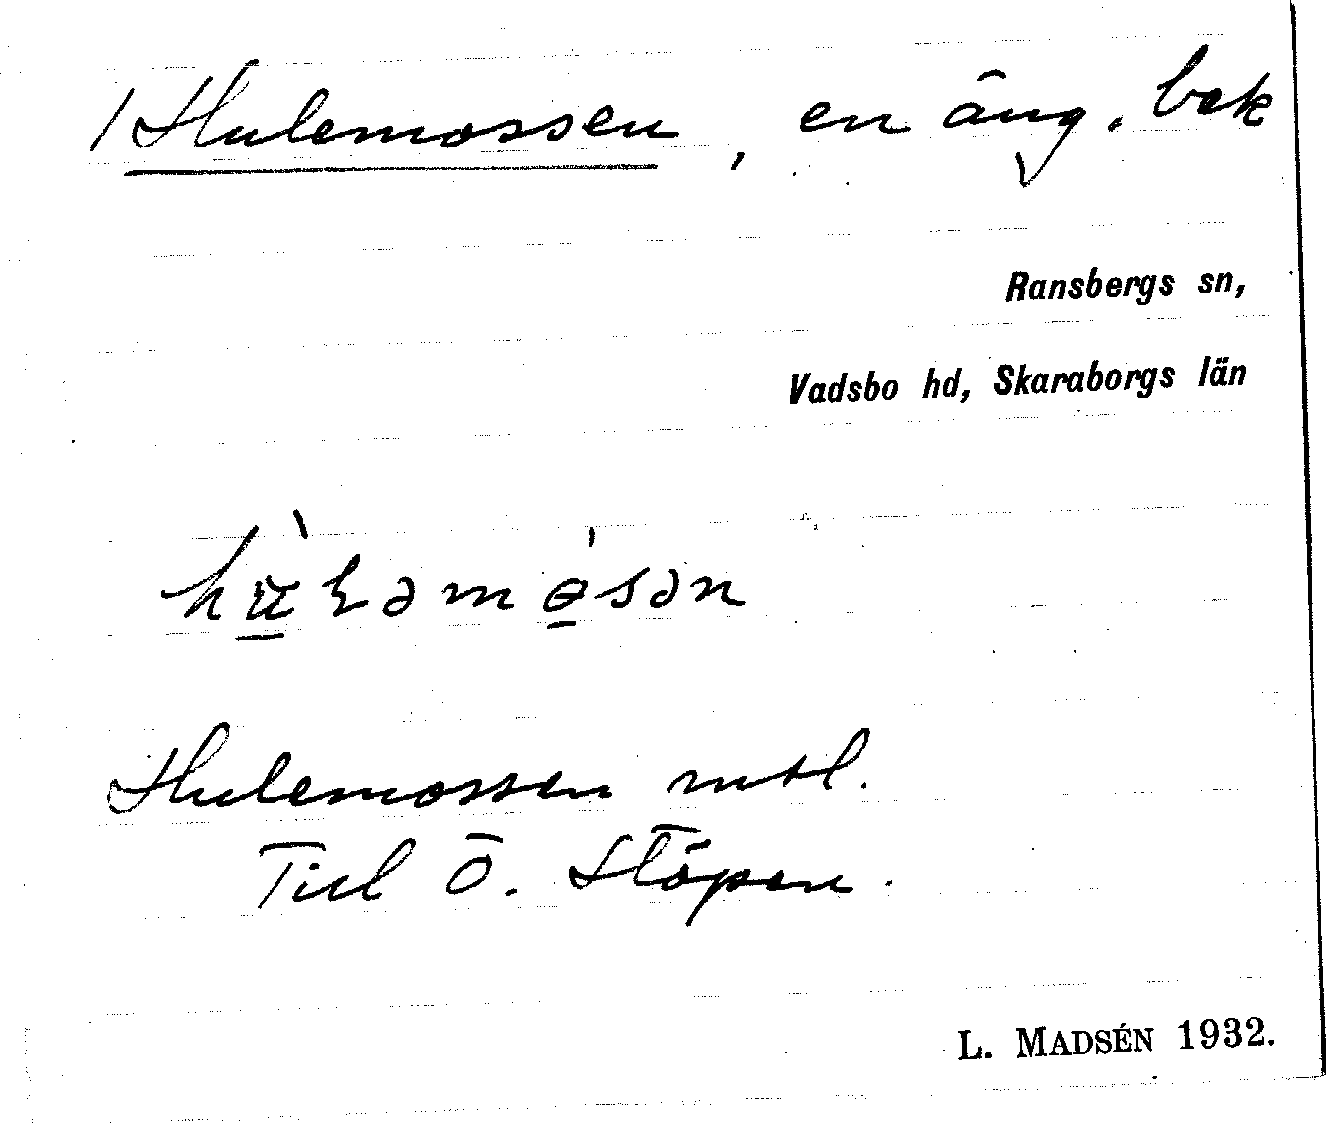 / Hulemossen, en äng. bek
Ransbergs sn,
Vadsbo hd, Skaraborgs län
Hulemossen mtl.
Till Ö. Stöpen.
L. MADSÉN 1932.